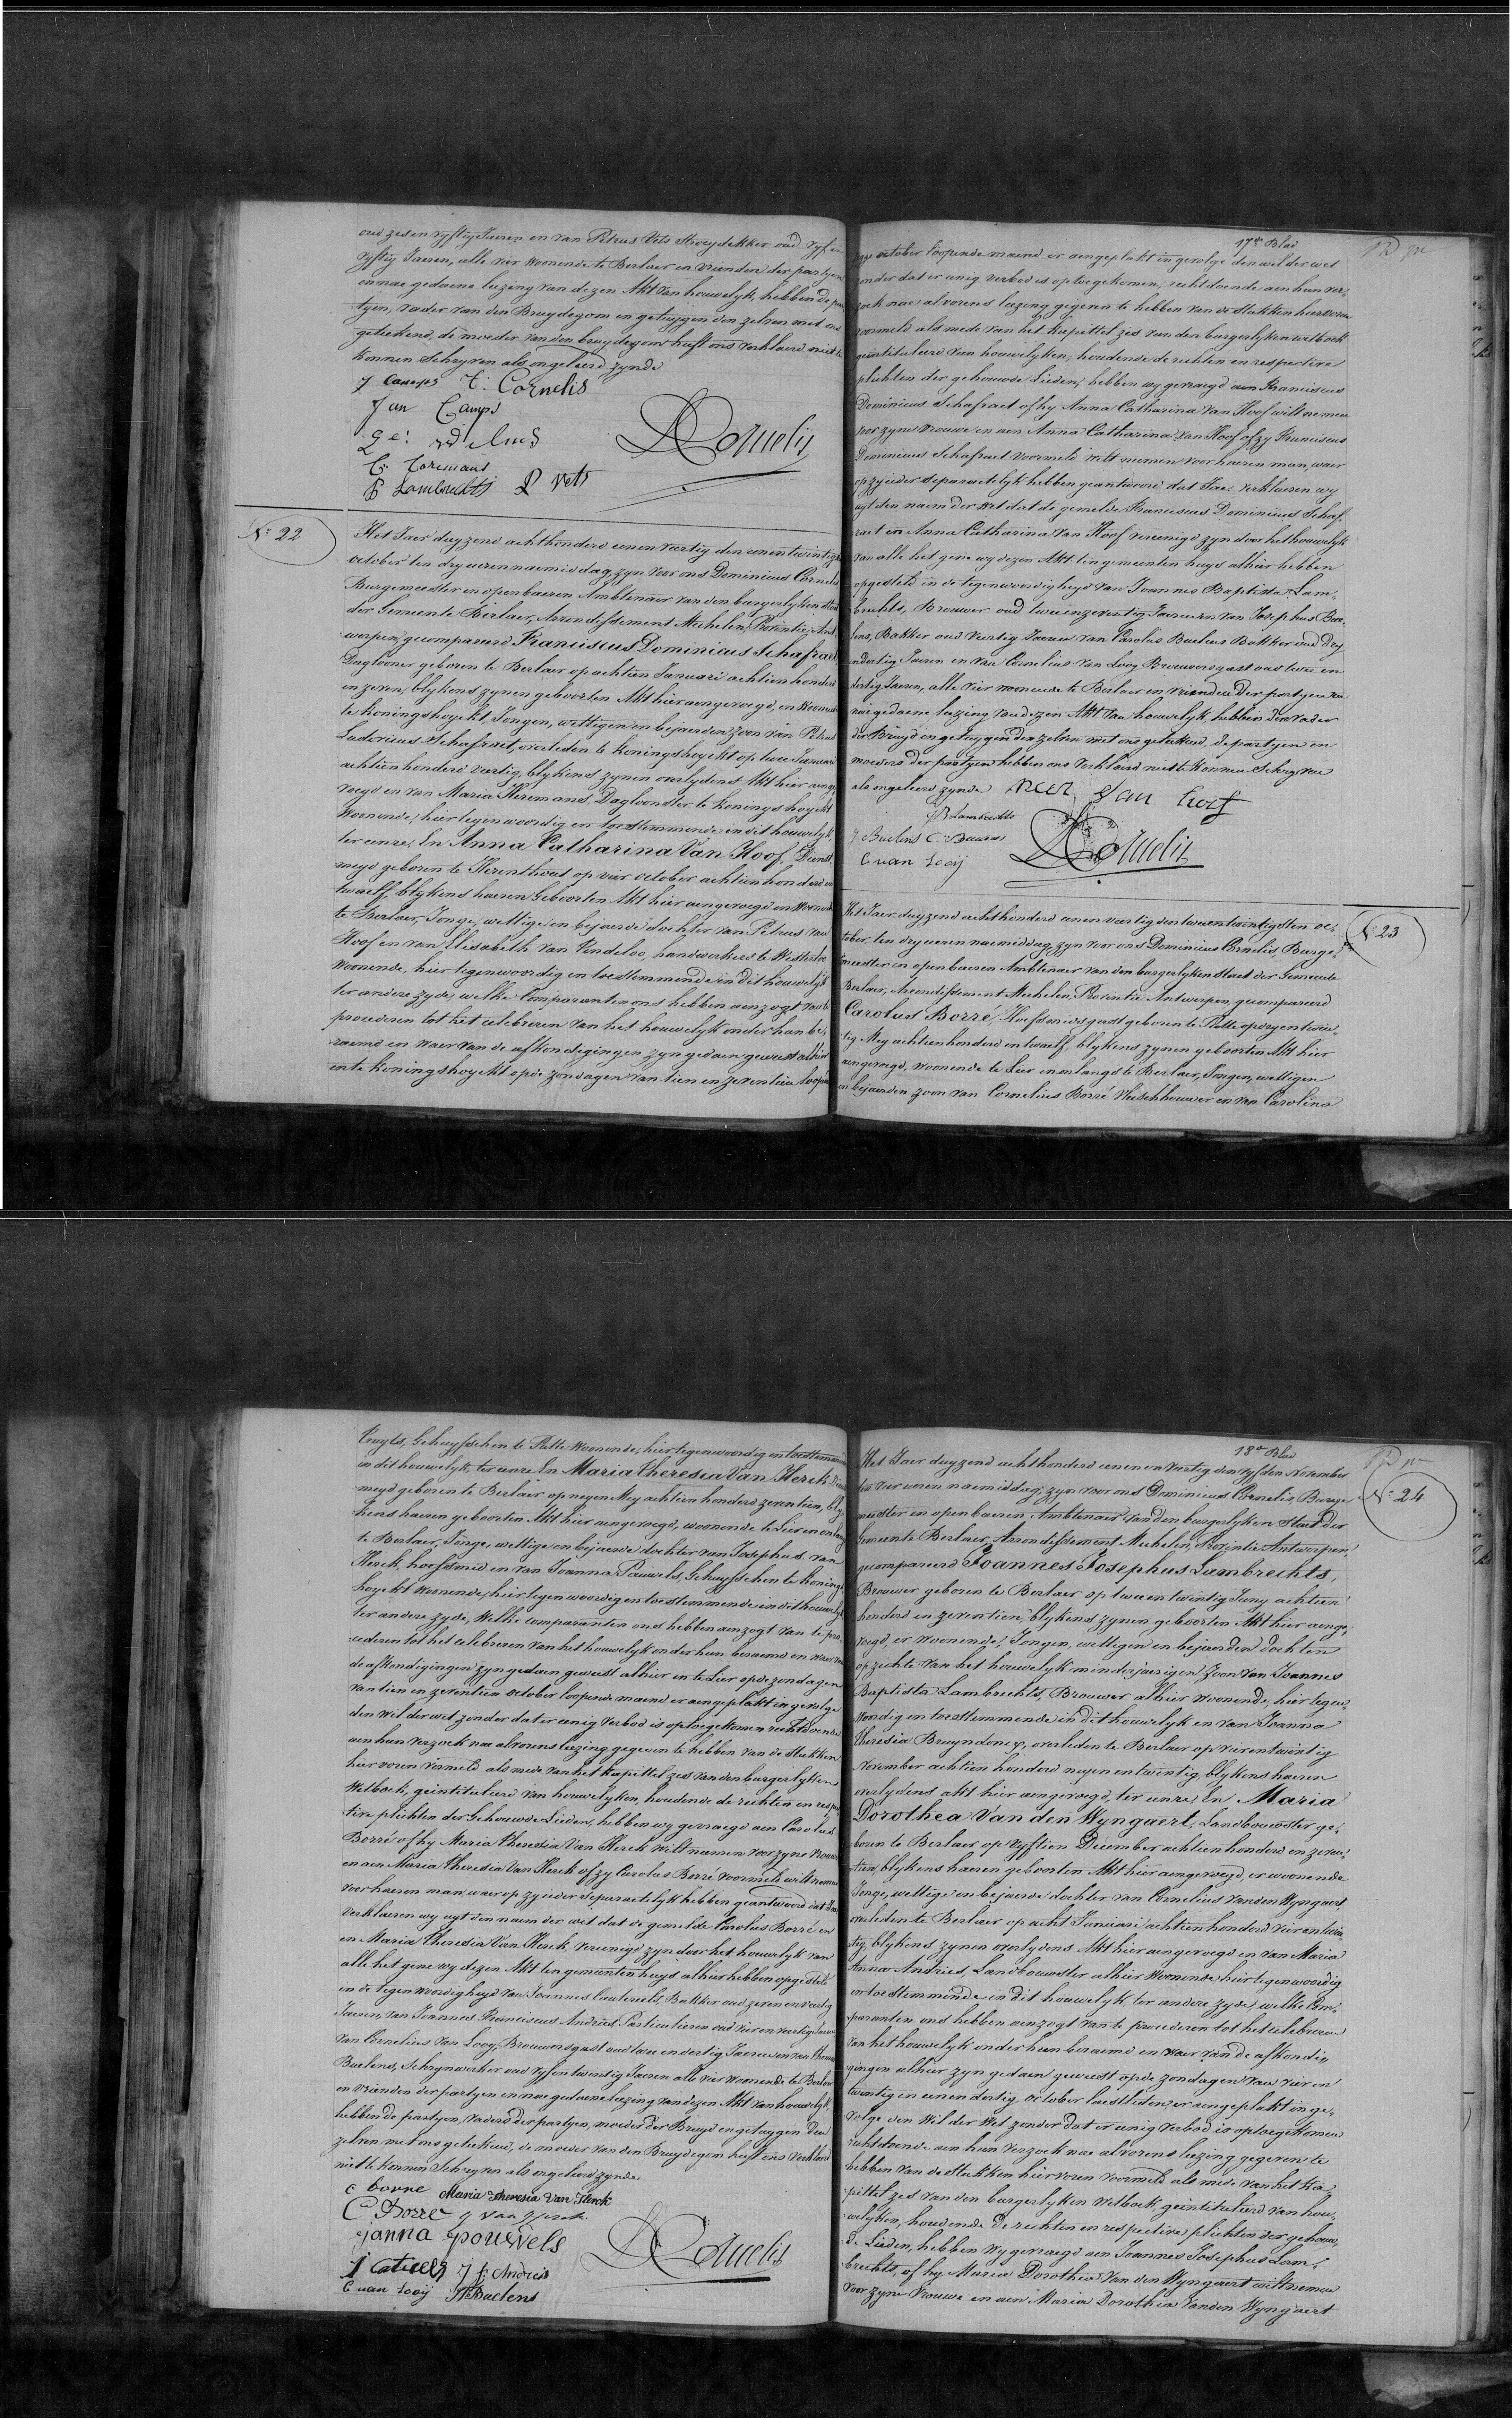 oud zes en vyftig Jaeren en van Petrus Vets Stroydekker oud vyf en
vyftig Jaeren, alle vier woonende te Berlaer en vrienden der partyen
en nae gedaene leezing van dezen Akt van houwelyk, hebben de par-
tyen, vader van den Bruydegom en getuygen den zelven met ons
geteekend, de moeder van den bruydegom heeft ons verklaerd niet te
konnen schryven als ongeleerd zynde
J Camps C: Cornelis
Jan Camps
C: Coremans
Lambrechts P Vets
DCornelis
N: 22
Het Jaer duyzend achthonderd eenen veertig den eenentwintigsten
october ten dry ueren naemiddag, zyn voor ons Dominicus Cornelis
Burgemeester en openbaeren Ambtenaer van den burgerlyken staet
der Gemeente Berlaer, Arrondissement Mechelen, Provintie Ant-
werpen, gecompareerd Franciscus Dominicus Schafraet
Daglooner geboren te Berlaer op achtien Januari achtien honderd
en zeven, blykens zynen geboorten Akt hier aengevoegd, en woonende
te Koningshoyckt, Jongen, wettigen en bejaerden zoon van Petrus
Ludovicus Schafraet, overleden te Koningshoyckt op twee Januari
achtien honderd veertig, blykens zynen overlydens Akt hier aenge-
voegd en van Maria Heremans, Dagloonster te Koningshoyckt
Woonende, hier tegenwoordig en toestemmende in dit houwelyk,
ter eenre, En Anna Catharina Van Hoof, Dienst-
meyd geboren te Herenthout op vier october achtien honderd en
twaelf, blykens haeren Geboorten Akt hier aengevoegd en woonende
te Berlaer, Jonge, wettige en bejaerde dochter van Petrus van
Hoof en van Elisabeth van Kendeloo, handwerkers te Westerloo
Woonende, hier tegenwoordig en toestemmende in dit houwelyk
ter andere zyde, welke Comparanten ons hebben aenzogt van te
procederen tot het celebreren van het houwelyk onder hun be-
raemd en waer van de afkondigingen zyn gedaen geweest alhier
en te Koningshoyckt op de zondagen van tien en zeventien loopen-
17de Blad
october loopende maend er aengeplakt in gevolge den wil der wet
zonder dat er eenig verbod is op toegekomen; recht doende aen hun ver-
zoek nae alvorens leezing gegeven te hebben van de stukken hiervoren
voormeld als mede van het kapittel zes van den burgerlyken wetboek
geintituleerd van houwelyken, houdende de rechten en respective
plichten der gehouwde Lieden; hebben wy gevraegd aen Franciscus
Dominicus Schafraet of hy Anna Catharina Van Hoof wilt nemen
voor zyne vrouwe en aen Anna Catharina Van Hoof of zy Franciscus
Dominicus Schafraet voormeld wilt nemen voor haeren man, waer
op zy ieder separaetelyk hebben geantwoord dat Jae; verklaeren wy
uyt den naem der wet dat de gemelde Franciscus Dominicus Schaf-
raet en Anna Catharina Van Hoof vereenigd zyn door het houwelyk
van alle het gene wy dezen Akt ten gemeenten huys alhier hebben
opgesteld in de tegenwoordigheyd van Joannes Baptista Lam-
brechts, Brouwer oud twee en zeventig Jaeren en van Josephus Bae-
lens, Bakker oud veertig Jaeren van Carolus Baelens Bakker oud dry
en dertig Jaeren en van Cornelius Van Looy Brouwersgast oud twee en
dertig Jaeren, alle vier woonende te Berlaer en vrienden der partyen en
nae gedaene leezing van dezen Akt van houwelyk, hebben den vader
der Bruyd en getuygen den zelven met ons geteekend, de partyen en
moeders der partyen hebben ons verklaerd niet te konnen schryven
als ongeleerd zynde Peer Van hoof
JB Lambrechts
J Baelens C: Baelens
C van Looij DCornelis
N: 23
Het Jaer duyzend achthonderd eenen veertig den tweentwintigsten oc-
tober ten dry ueren naemiddag, zyn voor ons Dominicus Cornelis, Burge-
meester en openbaeren Ambtenaer van den burgerlyken staet der Gemeente
Berlaer, Arrondissement Mechelen, Provintie Antwerpen, gecompareerd
Carolus Borré, Hoefsmidsgast geboren te Putte op dry en twin-
tig Mey achtienhonderd en twaelf, blykens zynen geboorten Akt hier
aengevoegd, woonende te Lier en onlangs te Berlaer, Jongen, wettigen
en bejaerden zoon van Cornelius Borré Vleeschhouwer en van Carolina
Cruyts, Gehuysschen te Putte Woonende, hier tegenwoordig en toestemmende
in dit houwelyk, ter eenre En Maria Theresia Van Herck Dienst-
meyd geboren te Berlaer op negen Mey achtien honderd zeventien, bly-
kens haeren geboorten Akt hier aengevoegd, woonende te Lier en onlangs
te Berlaer, Jonge, wettige en bejaerde dochter van Josephus van
Herck, hoefsmid en van Joanna Pauwels, Gehuysschen te Konings-
hoyckt Woonende, hier tegenwoordig en toestemmende in dit houwelyk
ter andere zyde, Welke comparanten ons hebben aenzogt van te pro-
cederen tot het celebreren van het houwelyk onder hun beraemd en waer van
de afkondigingen zyn gedaen geweest alhier en te Lier op de zondagen
van tien en zeventien october loopende maend er aengeplakt in gevolge
den wil der wet zonder dat er eenig verbod is op toegekomen rechtdoende
aen hun verzoek nae alvorens leezing gegeven te hebben van de stukken
hier voren vermeld als mede van het kapittel zes van den burgerlyken
Wetboek, geintituleerd van houwelyken, houdende de rechten en respec-
tive plichten der Gehouwde Lieden, hebben wy gevraegd aen Carolus
Borré of hy Maria Theresia Van Herck wilt nemen voor zyne vrouwe
en aen Maria Theresia Van Herck of zy Carolus Borré voormeld wilt nemen
voor haeren man, waer op zy ieder separaetelyk hebben geantwoord dat Jae
Verklaeren wy uyt den naem der wet dat de gemelde Carolus Borré en
en Maria Theresia Van Herck, vereenigd zyn door het houwelyk van
alle het gene wy dezen Akt ten gemeenten huys alhier hebben opgesteld
in de tegenwoordigheyd van Joannes Ceuterieels, Bakker oud zeven en veertig
Jaeren, van Joannes Franciscus Andries Particulieren oud vier en veertig Jaeren
van Cornelius Van Looy, Brouwersgast oud twee en dertig Jaeren en van
Baelens, Schrynwerker oud vyf en twintig Jaeren alle vier woonende te Berlaer
en vrienden der partyen en nae gedaene leezing van dezen Akt van houwelyk,
hebben de partyen, vaders der partyen, moeder der Bruyd en getuygen den
zelven met ons geteekend, de moeder van den Bruydegom heeft ons verklaerd
niet te konnen schryven als ongeleerd zynde
c borre Maria Theresia Van Herck
C Borre J Van Herck
Joanna Pouwels
J F Andries
C van Looij Baelens
DCornelis
18de Blad
N: 24
Het Jaer duyzend achthonderd eenen en veertig den vyfden November
ten vier ueren naemiddag, zyn voor ons Dominicus Cornelis, Burge-
meester en openbaeren Ambtenaer van den burgerlyken Staet der
Gemeente Berlaer, Arrondissement Mechelen, Provintie Antwerpen,
gecompareerd Joannes Josephus Lambrechts,
Brouwer geboren te Berlaer op twee en twintig Juny achtien
honderd en zeventien, blykens zynen geboorten Akt hier aenge-
voegd, er woonende, Jongen, wettigen en bejaerden dochten
opzichte van het houwelyk minderjaerigen Zoon van Joannes
Baptista Lambrechts, Brouwer alhier woonende, hier tegen-
woordig en toestemmende in dit houwelyk en van Joanna
Theresia Bruyndoncx, overleden te Berlaer op vierentwintig
November achtien honderd negen en twintig, blykens haeren
overlydens akt hier aengevoegd, ter eenre, En Maria
Dorothea Van den Wyngaert, Landbouwster ge-
boren te Berlaer op vyftien December achtien honderd en zeven-
tien, blykens haeren geboorten Akt hier aengevoegd, er woonende
Jonge, wettige en bejaerde dochter van Cornelius Van den Wyngaert,
overleden te Berlaer op acht Januari achtien honderd vier en twin-
tig, blykens zynen overlydens Akt hier aengevoegd en van Maria
Anna Andries, Landbouwster alhier Woonende, hier tegenwoordig
en toestemmende in dit houwelyk ter andere zyde, welke Com-
paranten ons hebben aenzogt van te procederen tot het celebreren
van het houwelyk onder hun beraemd en waer van de afkondi-
gingen alhier zyn gedaen geweest op de zondagen van vier en
twintig en eenen dertig october laestleden, er aengeplakt in ge-
volge den wil der Wet zonder dat er eenig verbod is op toegekomen
rechtdoende aen hun verzoek nae alvorens leezing gegeven te
hebben van de stukken hiervoren voormeld als mede van het ka-
pittel zes van den burgerlyken Wetboek, geintituleerd van hou-
welyken, houdende de rechten en respective plichten der gehouw-
de Lieden, hebben wy gevraegd aen Joannes Josephus Lam-
brechts, of hy Maria Dorothea Van den Wyngaert wilt nemen
voor zyne Vrouwe en aen Maria Dorothea Van den Wyngaert